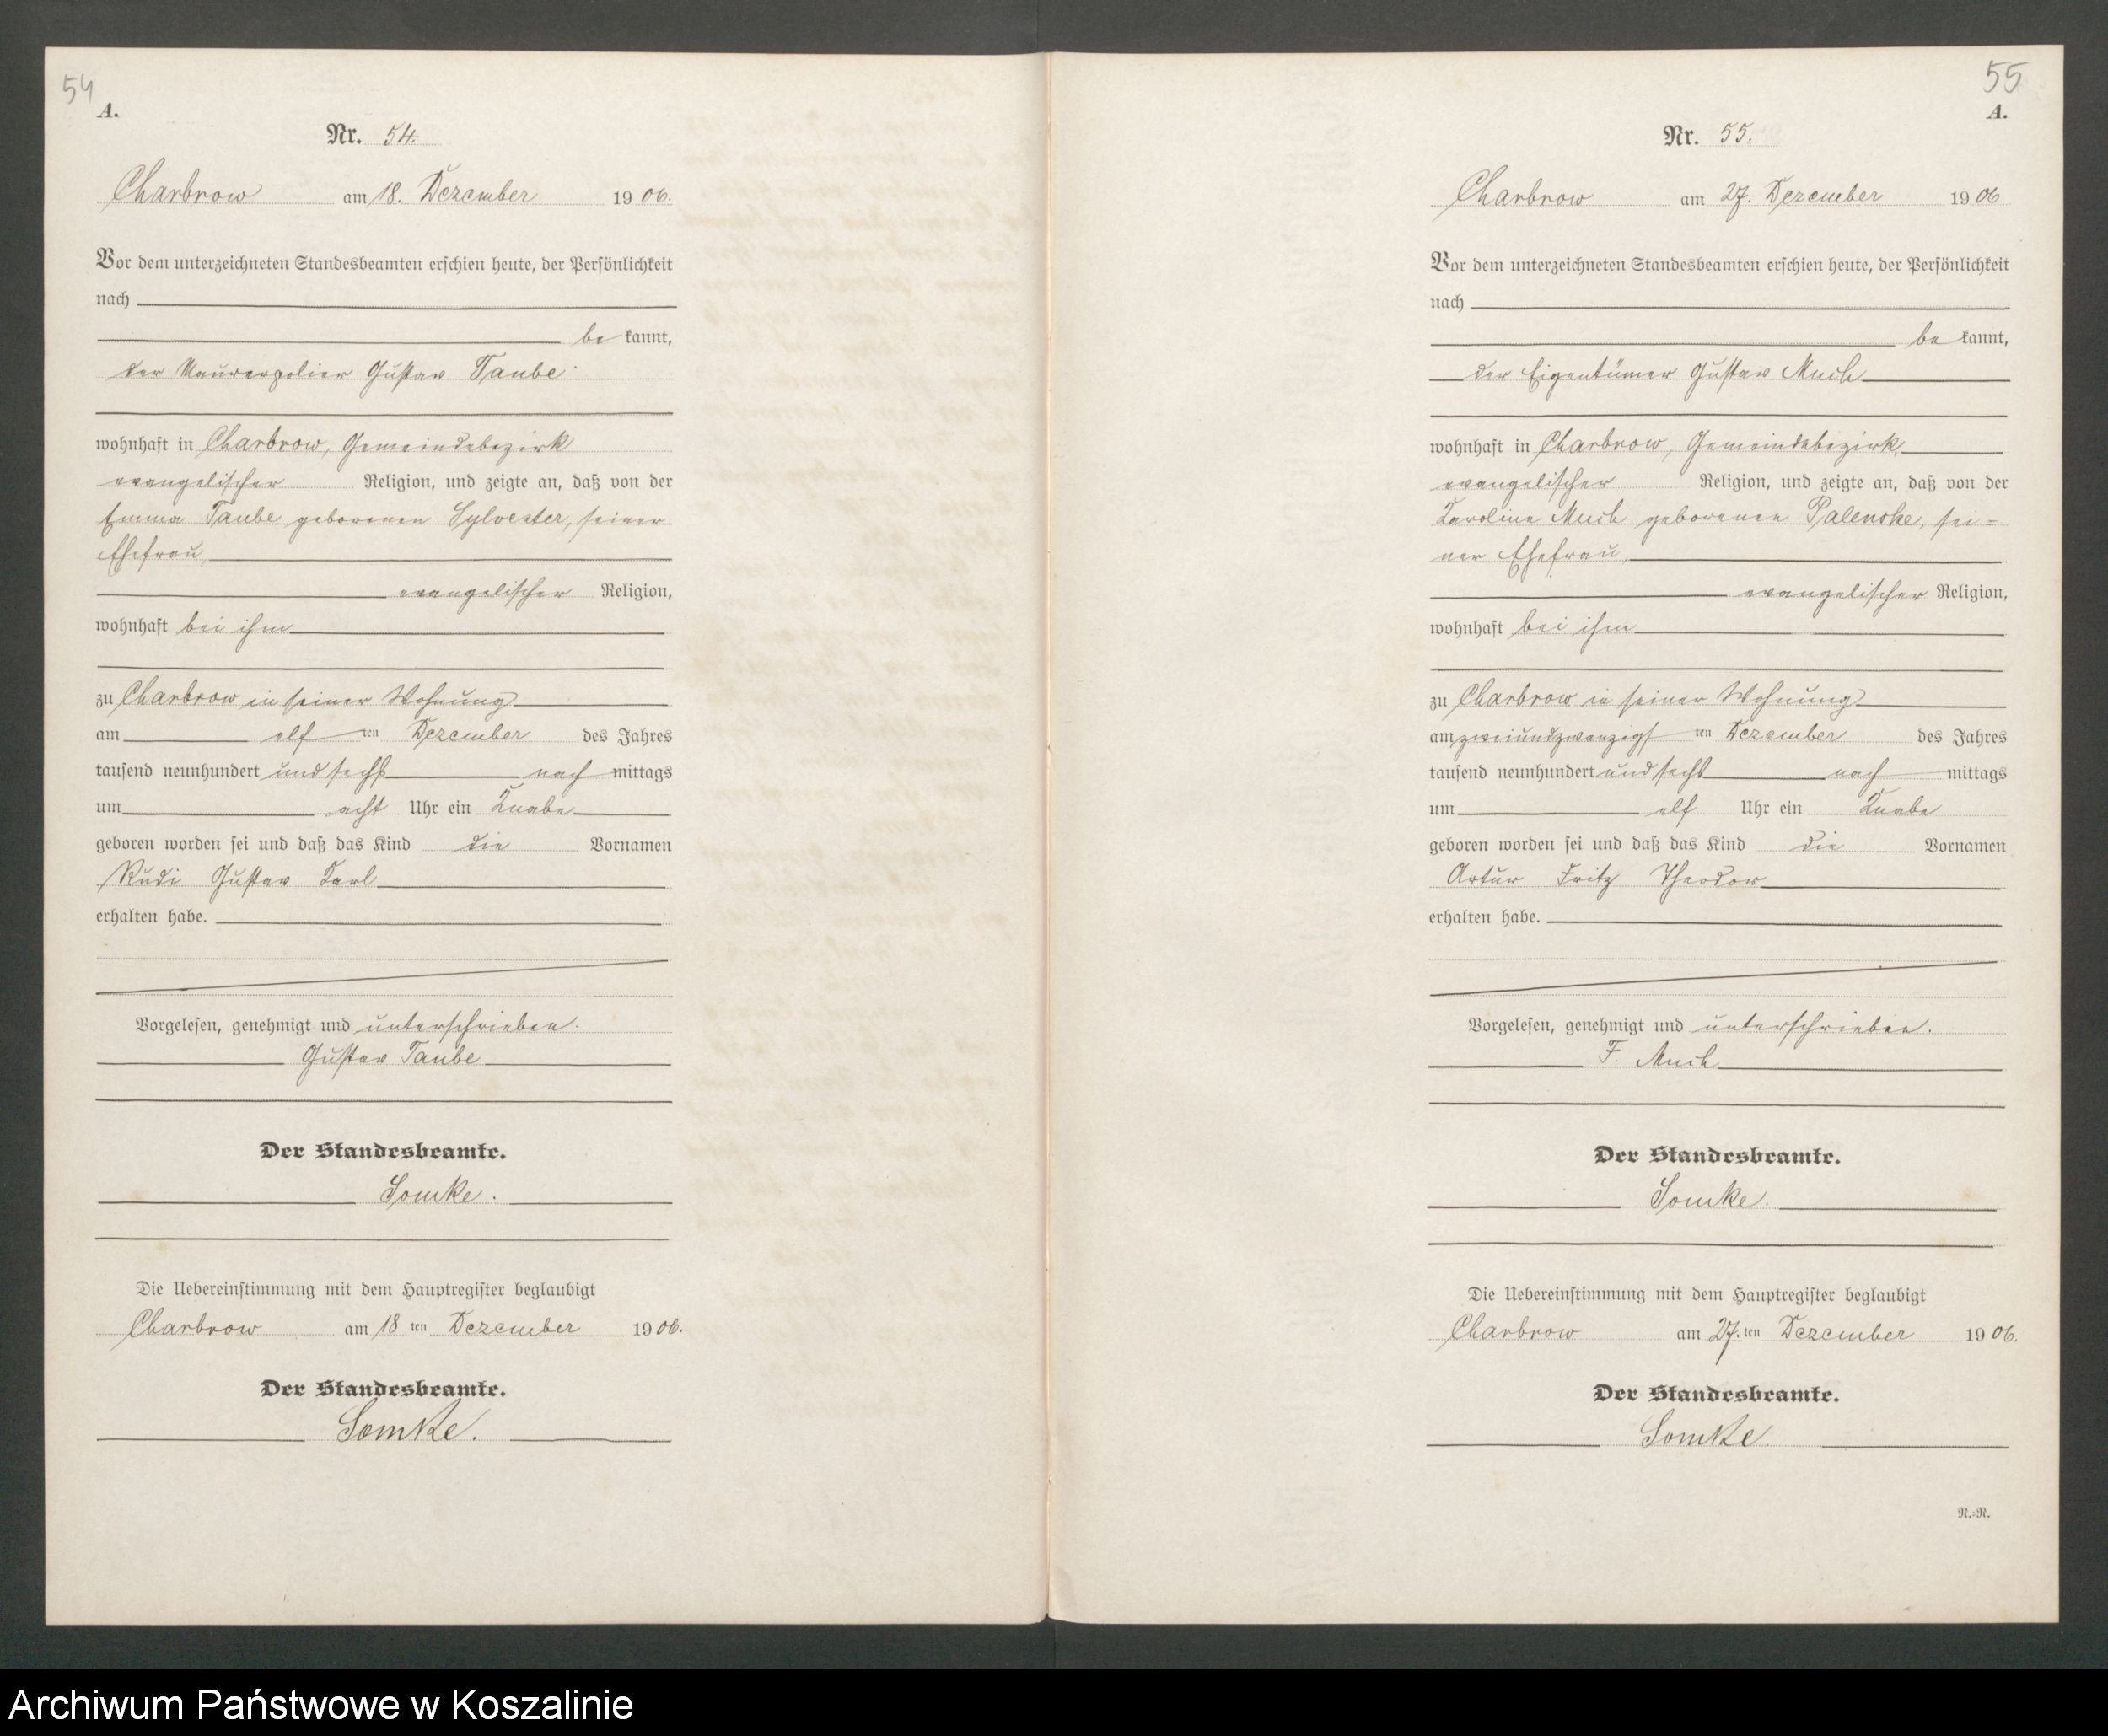 54
A.
Nr. 54.
Charbrow am 18. Dezember 1906.
Vor dem unterzeichneten Standesbeamten erschien heute, der Persönlichkeit
nach
be kannt,
der Maurerpolier Gustav Taube
wohnhaft in Charbrow, Gemeindebezirk
evangelischer Religion, und zeigte an, daß von der
Emma Taube geborenen Sylvester, seiner
Ehefrau,
evangelischer Religion,
wohnhaft bei ihm
zu Charbrow in seiner Wohnung
am elf ten Dezember des Jahres
tausend neunhundert und sechs nach mittags
um acht Uhr ein Knabe
geboren worden sei und daß das Kind die Vornamen
Rudi Gustav Karl
erhalten habe.
Vorgelesen, genehmigt und unterschrieben.
Gustav Taube
Der Standesbeamte.
Somke.
Die Uebereinstimmung mit dem Hauptregister beglaubigt
Charbrow am 18 ten Dezember 1906.
Der Standesbeamte.
Somke.
55
A.
Nr. 55.
Charbrow am 27. Dezember 1906
Vor dem unterzeichneten Standesbeamten erschien heute, der Persönlichkeit
nach
be kannt,
der Eigentümer Gustav Much
wohnhaft in Charbrow, Gemeindebezirk
evangelischer Religion, und zeigte an, daß von der
Karoline Much geborenen Palenske, sei=
ner Ehefrau,
evangelischer Religion,
wohnhaft bei ihm
zu Charbrow in seiner Wohnung
am zweiundzwanzigs ten Dezember des Jahres
tausend neunhundert und sechs nach mittags
um elf Uhr ein Knabe
geboren worden sei und daß das Kind die Vornamen
Artur Fritz Theodor
erhalten habe.
Vorgelesen, genehmigt und unterschrieben.
F. Much
Der Standesbeamte.
Somke.
Die Uebereinstimmung mit dem Hauptregister beglaubigt
Charbrow am 27. ten Dezember 1906.
Der Standesbeamte.
Somke
R.=R.
Archiwum Państwowe w Koszalinie